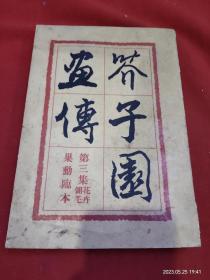 芥子園
畫傳
第三集花卉翎毛
巢勳臨本
2023.05.25 19:41